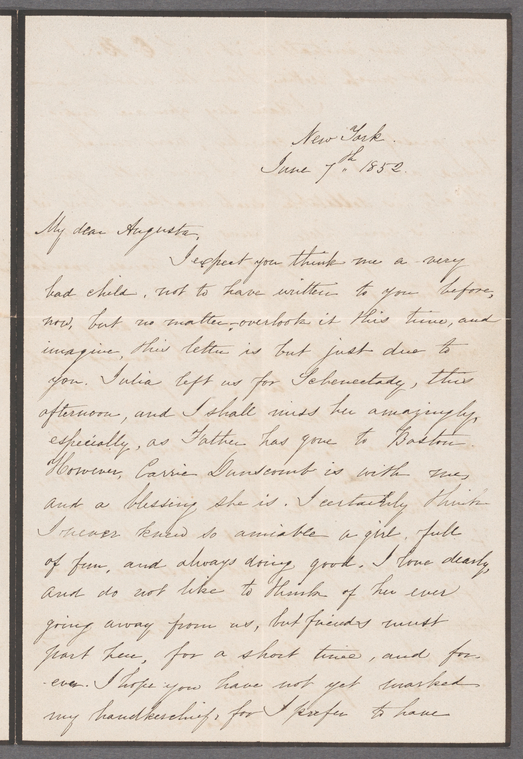 New York.
June 7th. 1852.
My dear Augusta,
I expect you think me a very
bad child, not to have written to you before,
now, but no matter overlook it this time, and
imagine, this letter is but just due to
you. Julia left us for Schenectady, this
afternoon, and I shall miss her amazingly,
especially, as Father has gone to Boston.
However, Carrie Dunscomb is with me,
and a blessing she is. I certainly think
I never knew so amiable a girl, full
of fun, and always doing good. I love dearly,
and do not like to think of her ever
going away from us, but friends must
part here, for a short time, and for
ever. I hope you have not yet marked
my handkerchief, for I prefer to have